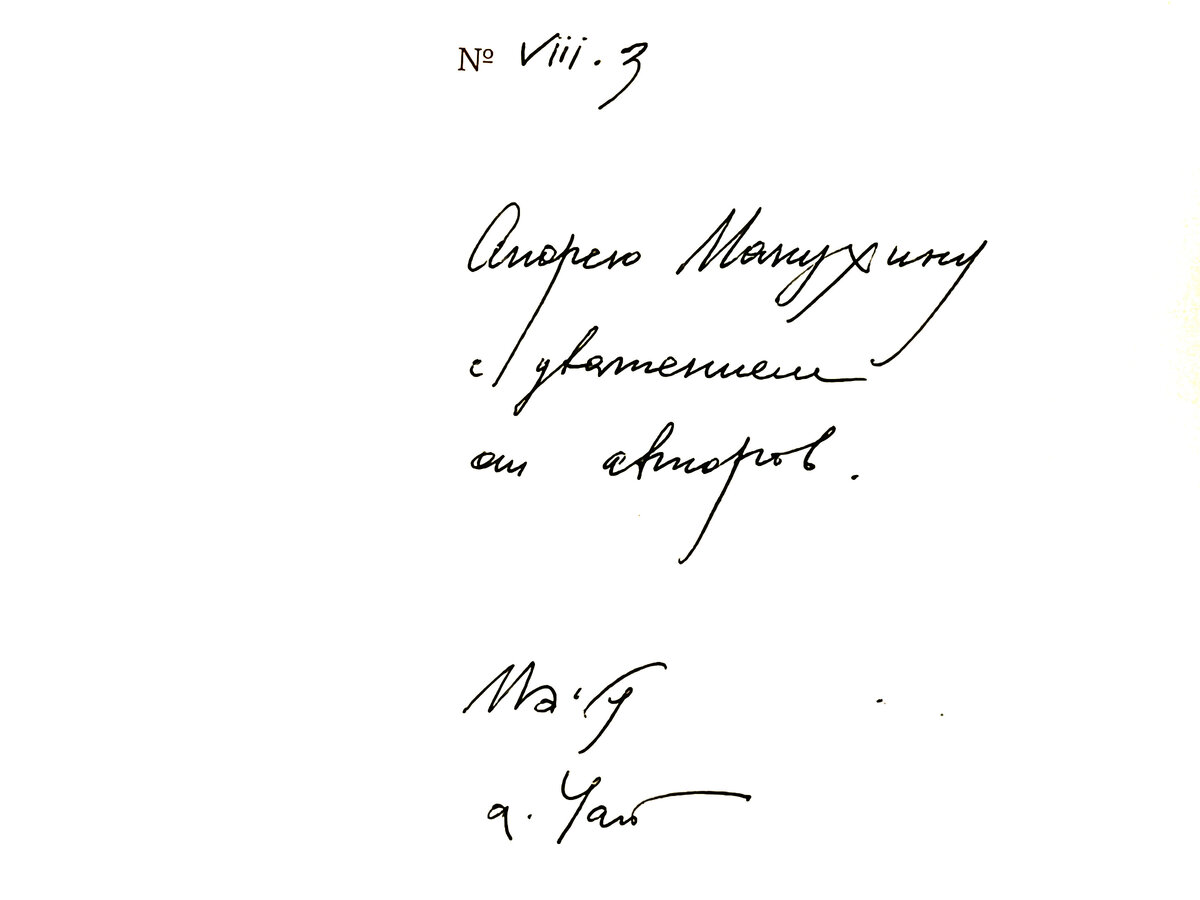 № viii.3
Андрею Манухину
с уважением
от авторов.